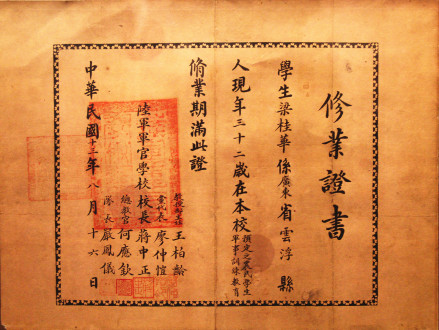 修業證書
學生梁桂華係廣東省雲浮縣
人現年三十二歲在本校擬定之農民學生軍事訓練教育
脩業期滿此證
教授部主任王柏齡
黨代表廖仲愷
陸軍軍官學校校長蔣中正
總教官何應欽
隊長嚴鳳儀
中華民國十三年八月十六日